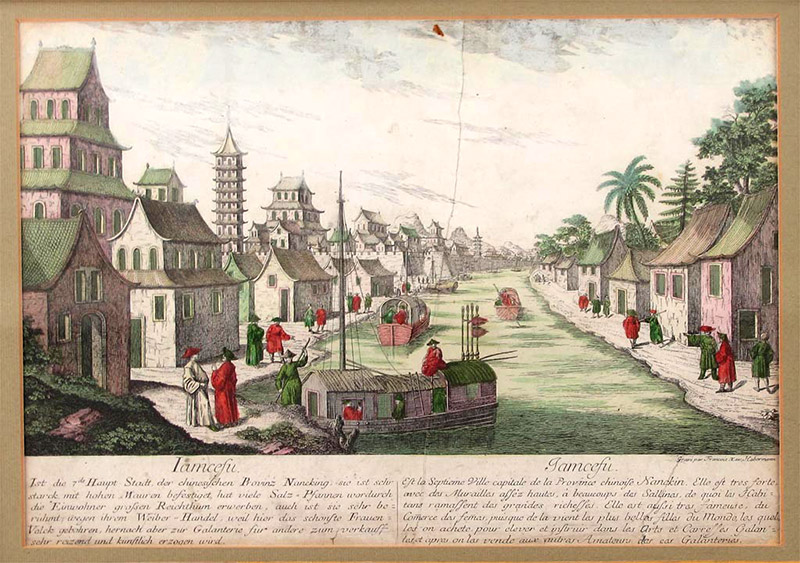 Iamcefu.
Ist die 7de Haupt Stadt der chinesischen Provinz Nancking; sie ist sehr
starck mit hohen Mauren befestiget, hat viele Saltz-Pfannen wordurch
die Einwohner grossen Reichthum erwerben, auch ist sie sehr be-
rühmt wegen ihrem Weiber-Handel, weil hier das schönste Frauen-
Volck gebohren, hernach aber zur Galanterie für andere zum verkauffe
sehr reizend und künstlich erzogen wird.
Jamcefu.
Gravé par François Xav. Habermann
Est la Septieme Ville capitale de la Province chinoise Nanckin. Elle est tres forte
avec des Murailles asséz hautes, à beaucoups des Sallines, de quoi les Habi-
tans ramassent des grandes richesses. Elle est aussi tres fameuse, du
Comerce des femes, puisque de la vient les plus belles filles du Monde, les quel-
les on achete, pour elever et instruir dans les Arts et
et apres on les vende aux autres Amateurs des Galanteries.